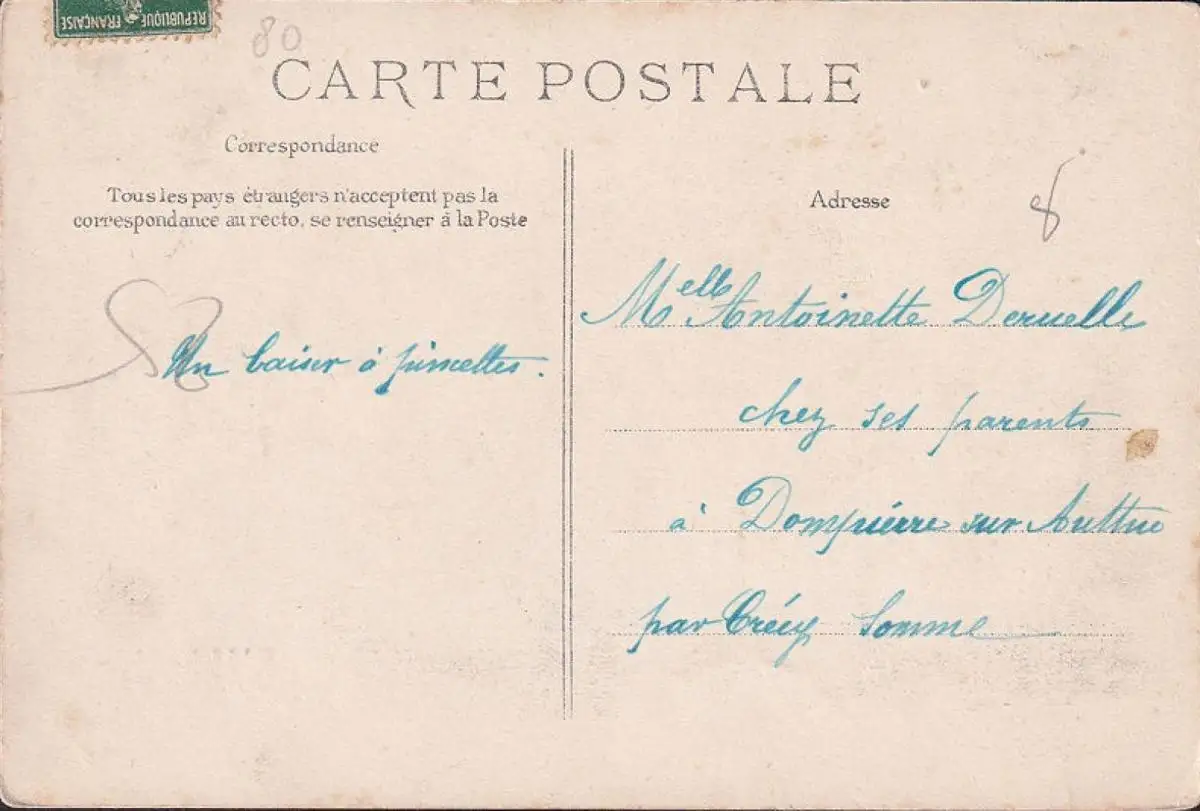 REPUBLIQUE FRANÇAISE
80
CARTE POSTALE
Correspondance
Tous les pays étrangers n'acceptent pas la
correspondance au recto, se renseigner à la Poste
Adresse
8
Melle Antoinette Deruelle
Un baiser à pincettes.
chez ses parents
à Dompierre sur Authie
par Crécy Somme